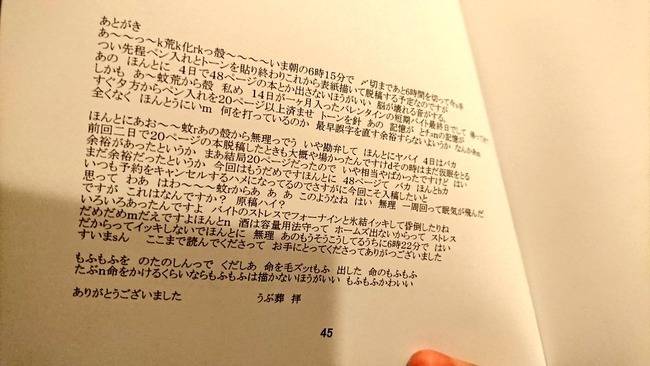 あとがき
あ～～っ～k荒k化rkっ殻～～～～いま朝の6時15分で 〆切まであと6時間を切って
つい先程ペン入れとトーンを貼り終わりこれから表紙描いて脱稿する予定なのですが
あの ほんとに 4日で48ページの本とか出さないほうがいい 脳が壊れる音がする、
しかも あ～蚊荒から殻 私め 14日が一ヶ月入ったバレンタインの短期バイト最終日でして
すぐ夕方からペン入れを20ページ以上済ませ トーンを針 あの 記憶が
全くなく ほんとうにいm 何を打っているのか 最早誤字を直す余裕すらないようか なんかあm
ほんとにあお～～蚊rあの殻から無理でう いや勘弁して ほんとにヤバイ 4日はバカ
前回二日で20ページの本脱稿したときも大概や場かったんですけdその時はまだ仮眠をとる
余裕があったというか まあ結局20ページだったので いや相当やばかったですけど はい
まだ余裕だったというか 今回はもうだめですほんとに 48ページて バカ ほんとbカ
いつも予約をキャンセルするハメになってるのでさすがに今回こそ入稿したいと
思って わぁ はわ～～～蚊rからあ あ あ このようなね はい 無理 一周回って眠気が飛んだ
ですが これはなんですか? 原稿ハイ?
いろいろあったんですよ バイトのストレスでフォーナインと氷結イッキして昏倒したりね
だめだめmだえですよほんとn 酒は容量用法守って ホームズ出ないからって ストレス
だからってイッキしないでほんとに 無理 あのもうそうこうしてるうちに6時22分で はい
すいまsん ここまで読んでくださって お手にとってくださってありがっございました
もふもふを のたのしんっで くだしあ 命を毛ズッtもふ 出した 命のもふもふ
たぶn命をかけるくらいならもふもふは描かないほうがいい もふもふかわいい
ありがとうございました うぶ葬 拝
45